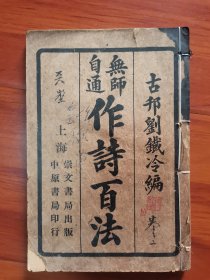 古邦劉鐵冷編
無師
自通
作詩百法
上海
崇文書局出版
中原書局印行